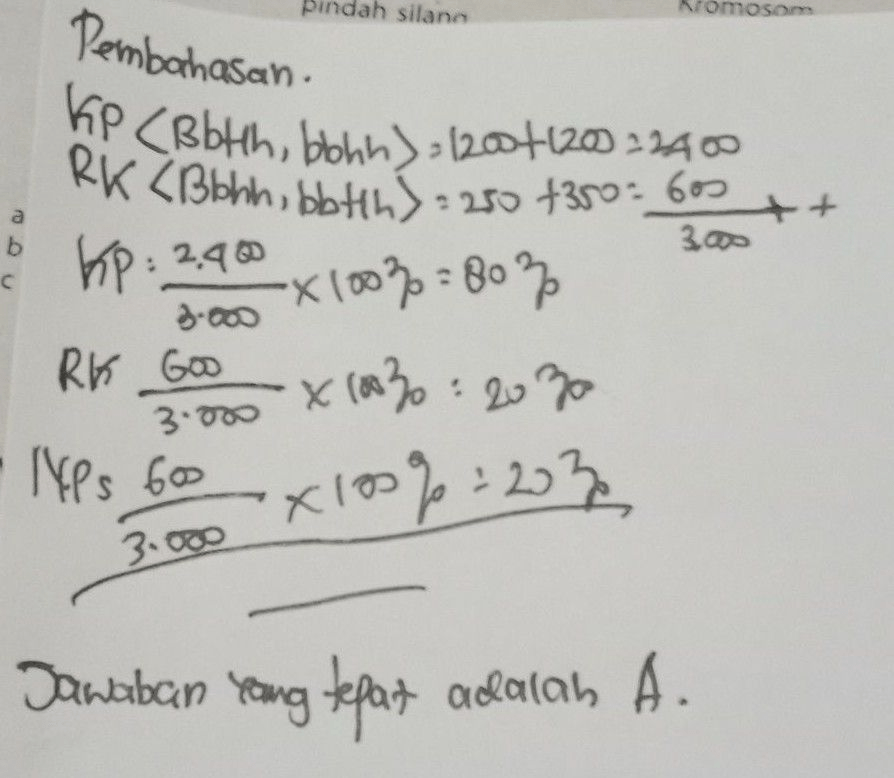 pindah silang
Kromosom
Pembahasan.
KP <BbHh, bbhh> = 1200+1200 = 2400
RK <Bbhh, bbHh> = 250 + 350 = 600 +
3.000
a
b
c
KP : 2.400 / 3.000 × 100% = 80%
RK 600 / 3.000 × 100% : 20%
NPs 600 / 3.000 × 100% = 20%
Jawaban yang tepat adalah A.